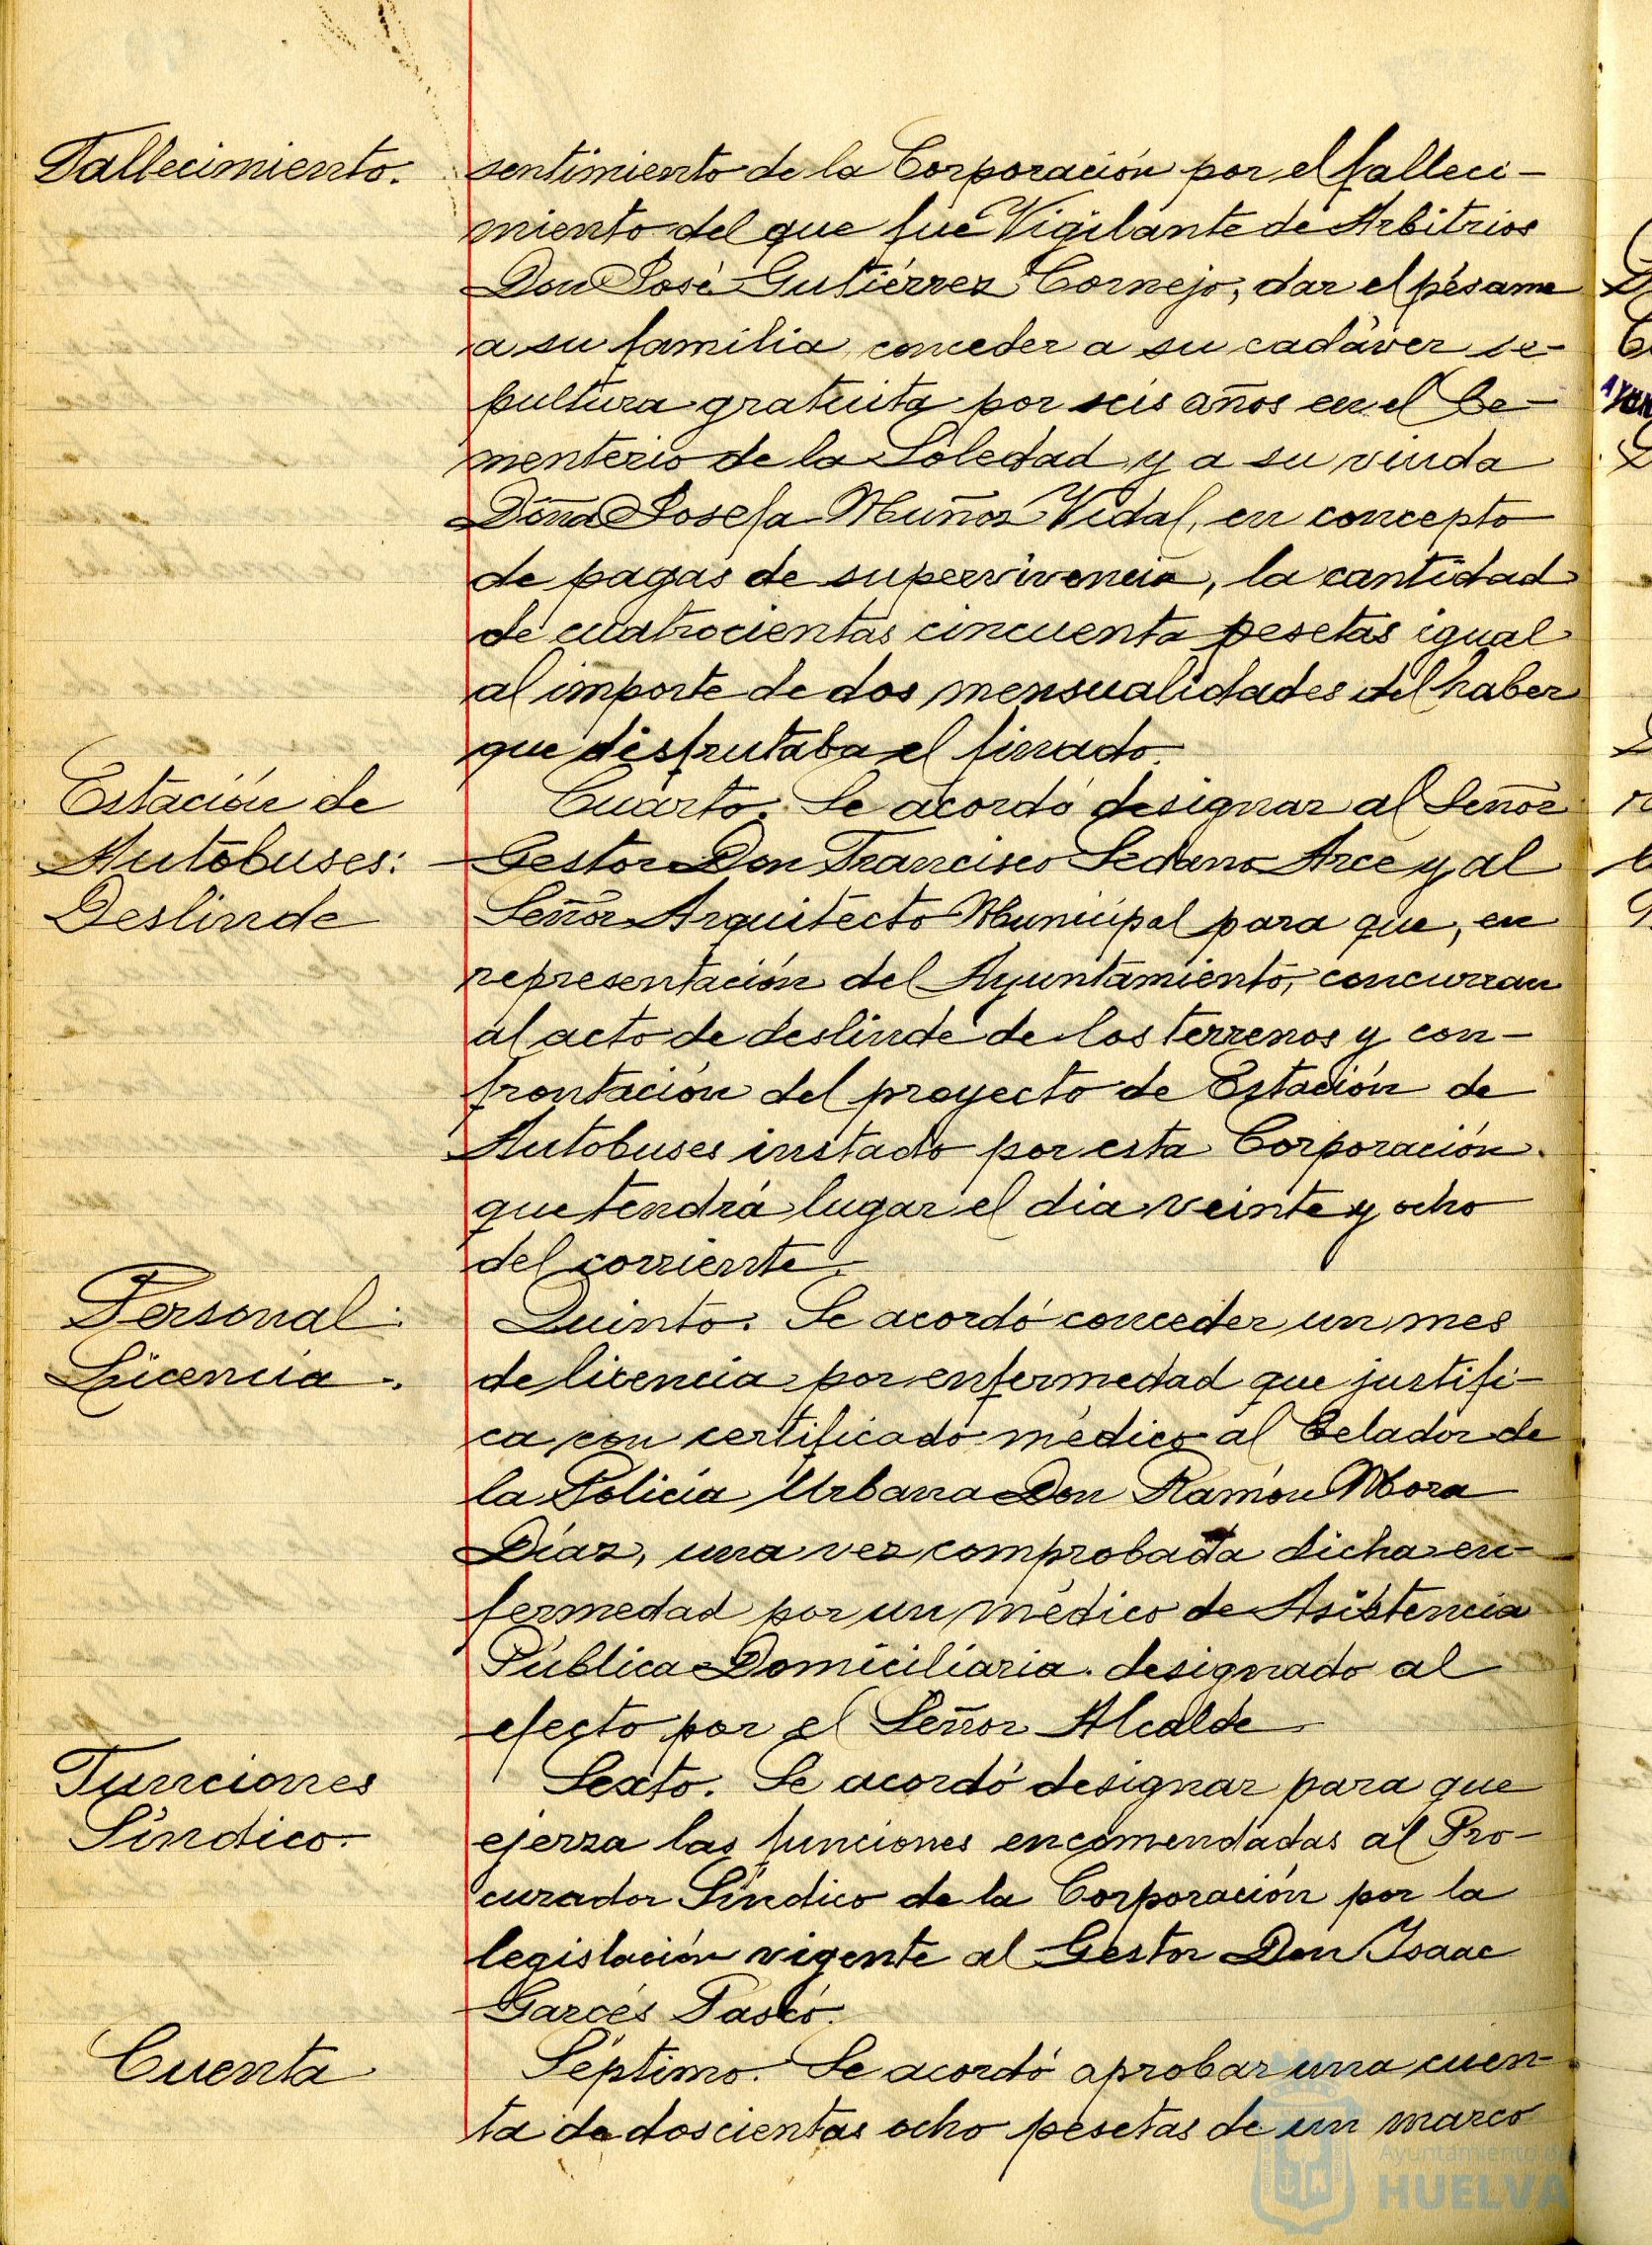 Fallecimiento.
sentimiento de la Corporación por el falleci-
miento del que fué Vigilante de Arbitrios
Don José Gutiérrez Cornejo, dar el pésame
a su familia, conceder a su cadáver se-
pultura gratuita por seis años en el Ce-
menterio de la Soledad y a su viuda
Doña Josefa Muñoz Vidal, en concepto
de pagas de supervivencia, la cantidad
de cuatrocientas cincuenta pesetas igual
al importe de dos mensualidades del haber
que disfrutaba el finado.
Estación de
Autobuses:
Deslinde
Cuarto. Se acordó designar al Señor
Gestor Don Francisco Sedano Arce y al
Señor Arquitecto Municipal para que, en
representación del Ayuntamiento, concurran
al acto de deslinde de los terrenos y con-
frontación del proyecto de Estación de
Autobuses instado por esta Corporación
que tendrá lugar el dia veinte y ocho
del corriente.
Personal:
Licencia.
Quinto. Se acordó conceder un mes
de licencia por enfermedad que justifi-
ca con certificado médico al Celador de
la Policía Urbana Don Ramón Mora
Díaz, una vez comprobada dicha en-
fermedad por un médico de Asistencia
Pública Domiciliaria designado al
efecto por el Señor Alcalde.
Funciones
Síndico.
Sexto. Se acordó designar para que
ejerza las funciones encomendadas al Pro-
curador Síndico de la Corporación por la
legislación vigente al Gestor Don Isaac
Garcés Pascó.
Cuenta
Séptimo. Se acordó aprobar una cuen-
ta de doscientas ocho pesetas de un marco
Ayuntamiento de
HUELVA